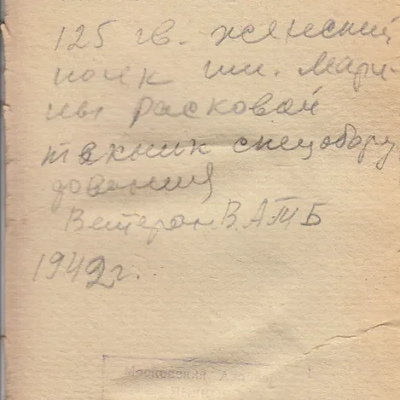 125 гв. женский
полк им. Мари-
ны Расковой
техник спецобору
дования
Ветеран В.А.ТБ
1942г.
Московский